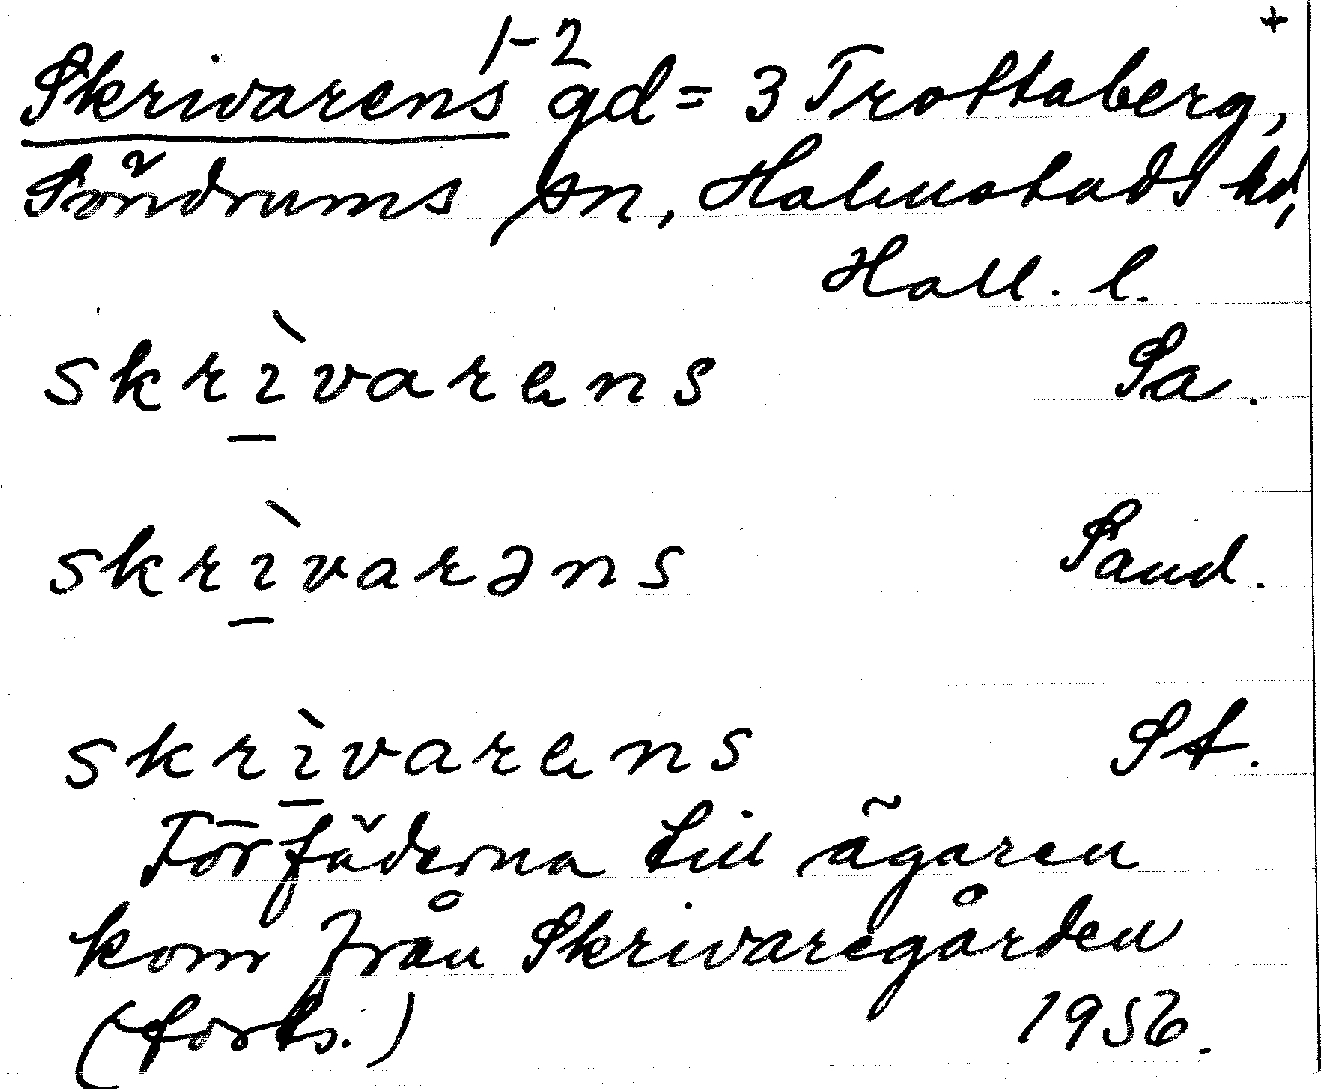 +
Skrivarens 1-2 gd = 3 Trottaberg,
Söndrums sn, Halmstads hd,
Hall. l.
skrìvarens Sa.
skrìvarəns Sand.
skrìvarens St.
Förfäderna till ägaren
kom från Skrivaregården
(forts.) 1956.